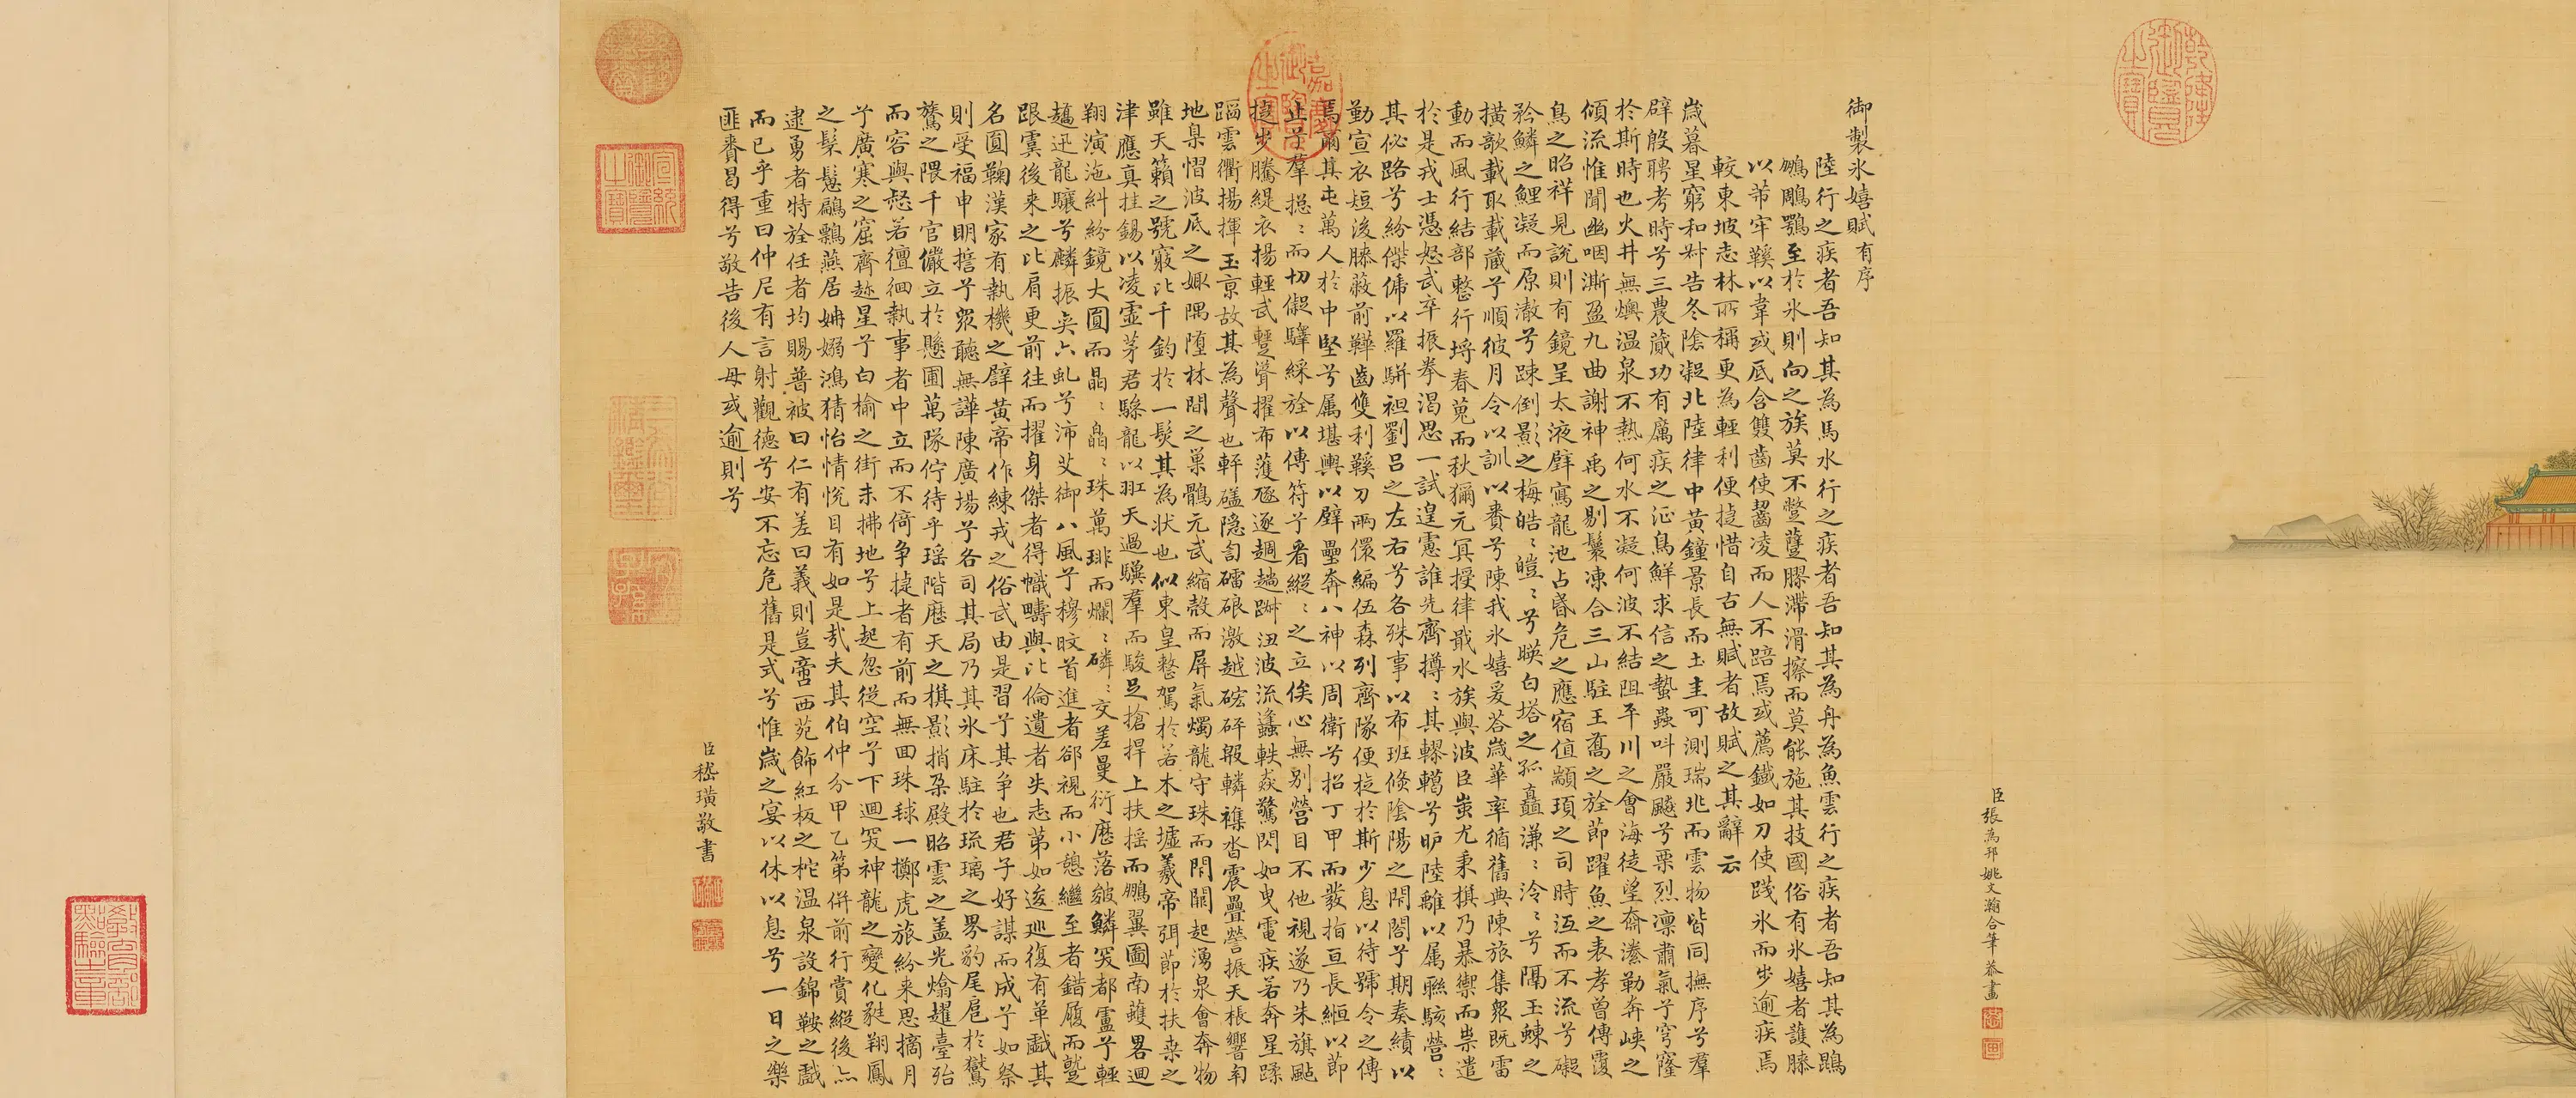 乾隆御覽之寶
臣張為邦姚文瀚合筆恭畫
御製氷嬉賦有序
陸行之疾者吾知其為馬水行之疾者吾知其為舟為魚雲行之疾者吾知其為鵾
鵬鵰鶚至於氷則向之族莫不躄躠膠滯滑擦而莫能施其技國俗有氷嬉者護膝
以芾牢鞵以韋或底含雙齒使齧凌而人不踣焉或薦鐵如刀使踐氷而步逾疾焉
較東坡志林所稱更為輕利便捷惜自古無賦者故賦之其辭云
歲暮星窮和叔告冬陰凝北陸律中黃鐘景長而土圭可測瑞兆而雲物皆同撫序兮羣
辟殷聘考時兮三農蕆功有厲疾之征鳥鮮求信之蟄蟲叫嚴飈兮栗烈凛肅氣兮穹窿
於斯時也火井無燠溫泉不熱何水不凝何波不結阻平川之會海徒望齊溱勒奔峽之
傾流惟聞幽咽澌盈九曲謝神禹之剔鬟凍合三山駐王喬之旌節躍魚之表孝曾傳覆
鳥之昭祥見說則有鏡呈太液壁寫龍池占昏危之應宿值顓頊之司時沍而不流兮礙
矜鱗之鯉凝而原澈兮踈倒影之梅皓〻皚〻兮映白塔之孤矗溓〻泠〻兮隔玉蝀之
橫歌載取載蕆兮順彼月令以訓以賚兮陳我氷嬉爰荅歲華率循舊典陳旅集眾既雷
動而風行結部整行埒春蒐而秋獮元冥授律戢水族與波臣蚩尤秉旗乃暴禦而祟遣
於是戎士憑怒武卒振拳渴思一試遑慮誰先齊撙〻其轇轕兮昈陸離以属聯駭營〻
其佖路兮紛傑以羅駢袒劉呂之左右兮各殊事以布班倏陰陽之開閤兮期奏績以
勤宣衣短後膝蔽前鞾齒雙利鞵刀兩儇編伍森列齊隊便旋於斯少息以待號令之傳
焉爾其屯萬人於中堅兮属堪輿以壁壘奔八神以周衛兮招丁甲而發指亘長絚以節
止兮羣挹〻而切儗驛綵旌以傳符兮看縱〻之立俟心無别營目不他視遂乃朱旗颭
捷步騰緹衣揚輕武聳擢布濩逐波流蠭軼焱驚閃如曳電疾若奔星蹂
蹈雲衢揚揮玉京故其為聲也軒礚隱訇礌硠激越硡砰轔襍沓震疊營振天根響匐
地臬慴波底之娵隅墮林間之巢鶻元武縮殻而屏氣燭龍守珠而閉關起湧泉會奔物
雖天籟之號竅比千鈞於一髮其為狀也似東皇整駕於若木之墟羲帝弭節於扶桑之
津應真挂錫以凌霊茅君騄龍以天過驥羣而駿足搶捍上扶摇而鵬翼圖南畧迴
翔演沲糾紛鏡大圓而晶〻皛〻珠萬琲而爛〻磷〻交差曼衍磨落皴鱗突都盧兮輕
趫迅龍驤兮麟振奐六虬兮沛艾御八風兮穆旼首進者郤視而小憩繼至者錯履而蹔
跟霣後来之比肩更前往而擢身傑者得幟疇與比倫遺者失志苐如逡巡復有革戲其
名圓鞠漢家有執機之辟黃帝作練戎之俗武由是習兮其爭也君子好謀而成兮如祭
則受福申明誓兮眾聽無譁陳廣場兮各司其局乃其氷床駐於琉璃之界豹尾扈於鸑
鷟之隈千官儼立於懸圃萬隊佇待乎瑶階歷天之旗影捎朶殿昭雲之盖光爚燿臺殆
而容與若徊執事者中立而不倚争捷者有前而無回珠毬一擲虎旅紛来思摘月
兮廣寒之窟齊趂星兮白榆之街未拂地兮上起忽從空兮下迴突神龍之變化翔鳳
之燕居鴻猜怡情悅目有如是哉夫其伯仲分甲乙第併前行賞縱後亦
逮勇者特旌任者均賜普被曰仁有差曰義則豈啻西苑飾紅板之柁溫泉設錦鞍之戲
而已乎重曰仲尼有言射觀德兮安不忘危舊是式兮惟歲之宴以休以息兮一日之樂
匪賚曷得兮敬告後人毋或逾則兮
臣嵇璜敬書
嘉慶御覽之寶
乾隆鑑賞
宣統御覽之寶
三希堂精鑑璽
宜子孫
教育部點驗之章